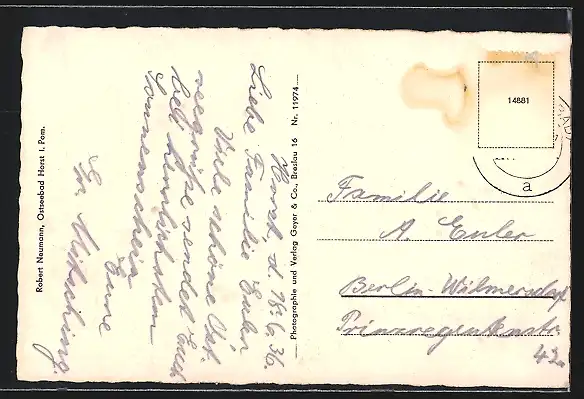 Horst, d. 18.6.36.
Liebe Familie Euler
Viele schöne Ost-
seegrüße sendet Euch
bei herrlichstem
Sonnenschein
Eure
Photographie und Verlag Geyer & Co., Breslau 16 Nr. 11974
Robert Neumann, Ostseebad Horst i. Pom.
14881
a
Familie
A. Euler
Berlin-Wilmersdorf
Prinzregentenstr.
42.